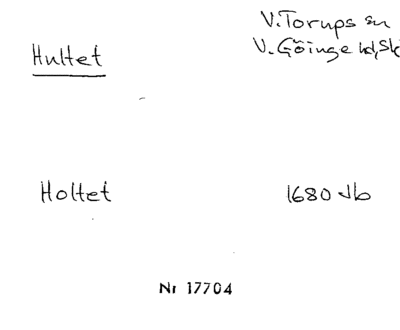 V. Torups sn
Hultet
V. Göinge hd, Sk
Holtet
1680 Jb
Nr 17704